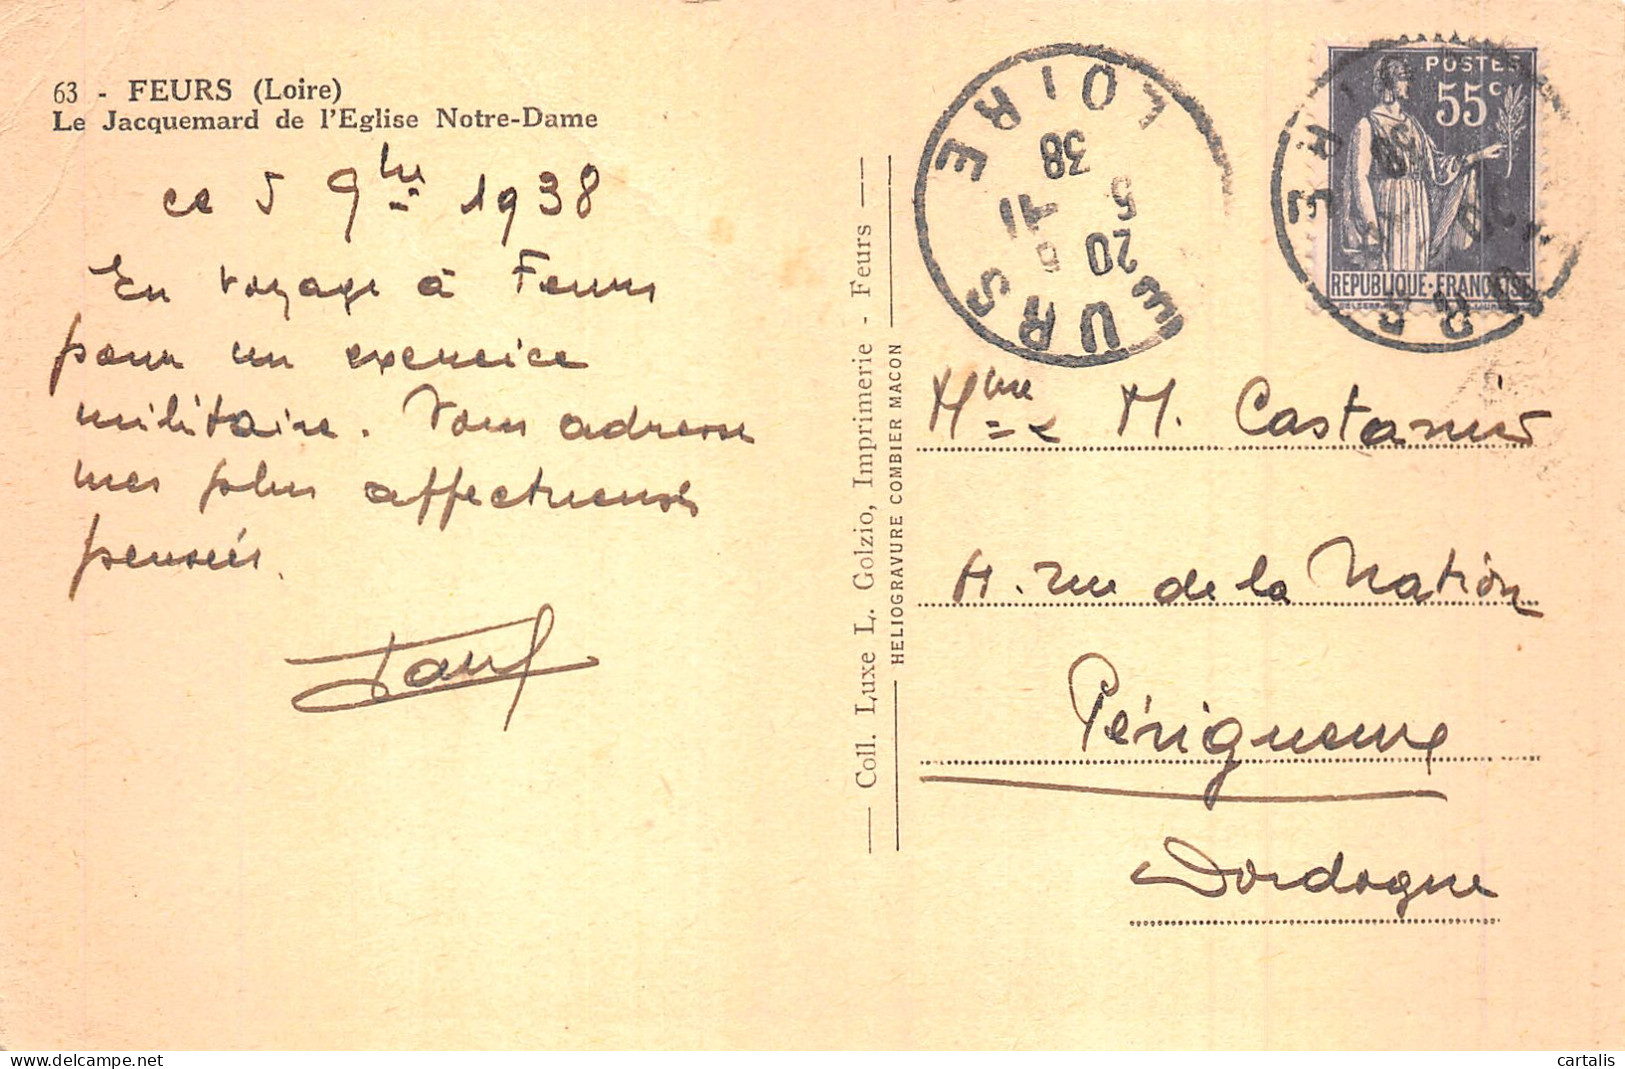 63 - FEURS (Loire)
Le Jacquemard de l'Eglise Notre-Dame
ce 5 9bre 1938
En voyage à Feurs
pour un exercice
militaire. Vous adresse
mes plus affectueuses
pensées.
Coll. Luxe L. Golzio, Imprimerie - Feurs
HELIOGRAVURE COMBIER MACON
FEURS LOIRE
20 5
5 -11
38
POSTES
55c
REPUBLIQUE·FRANÇAISE
Mme M.
4. rue de la Nation
Périgueux
Dordogne
cartalis